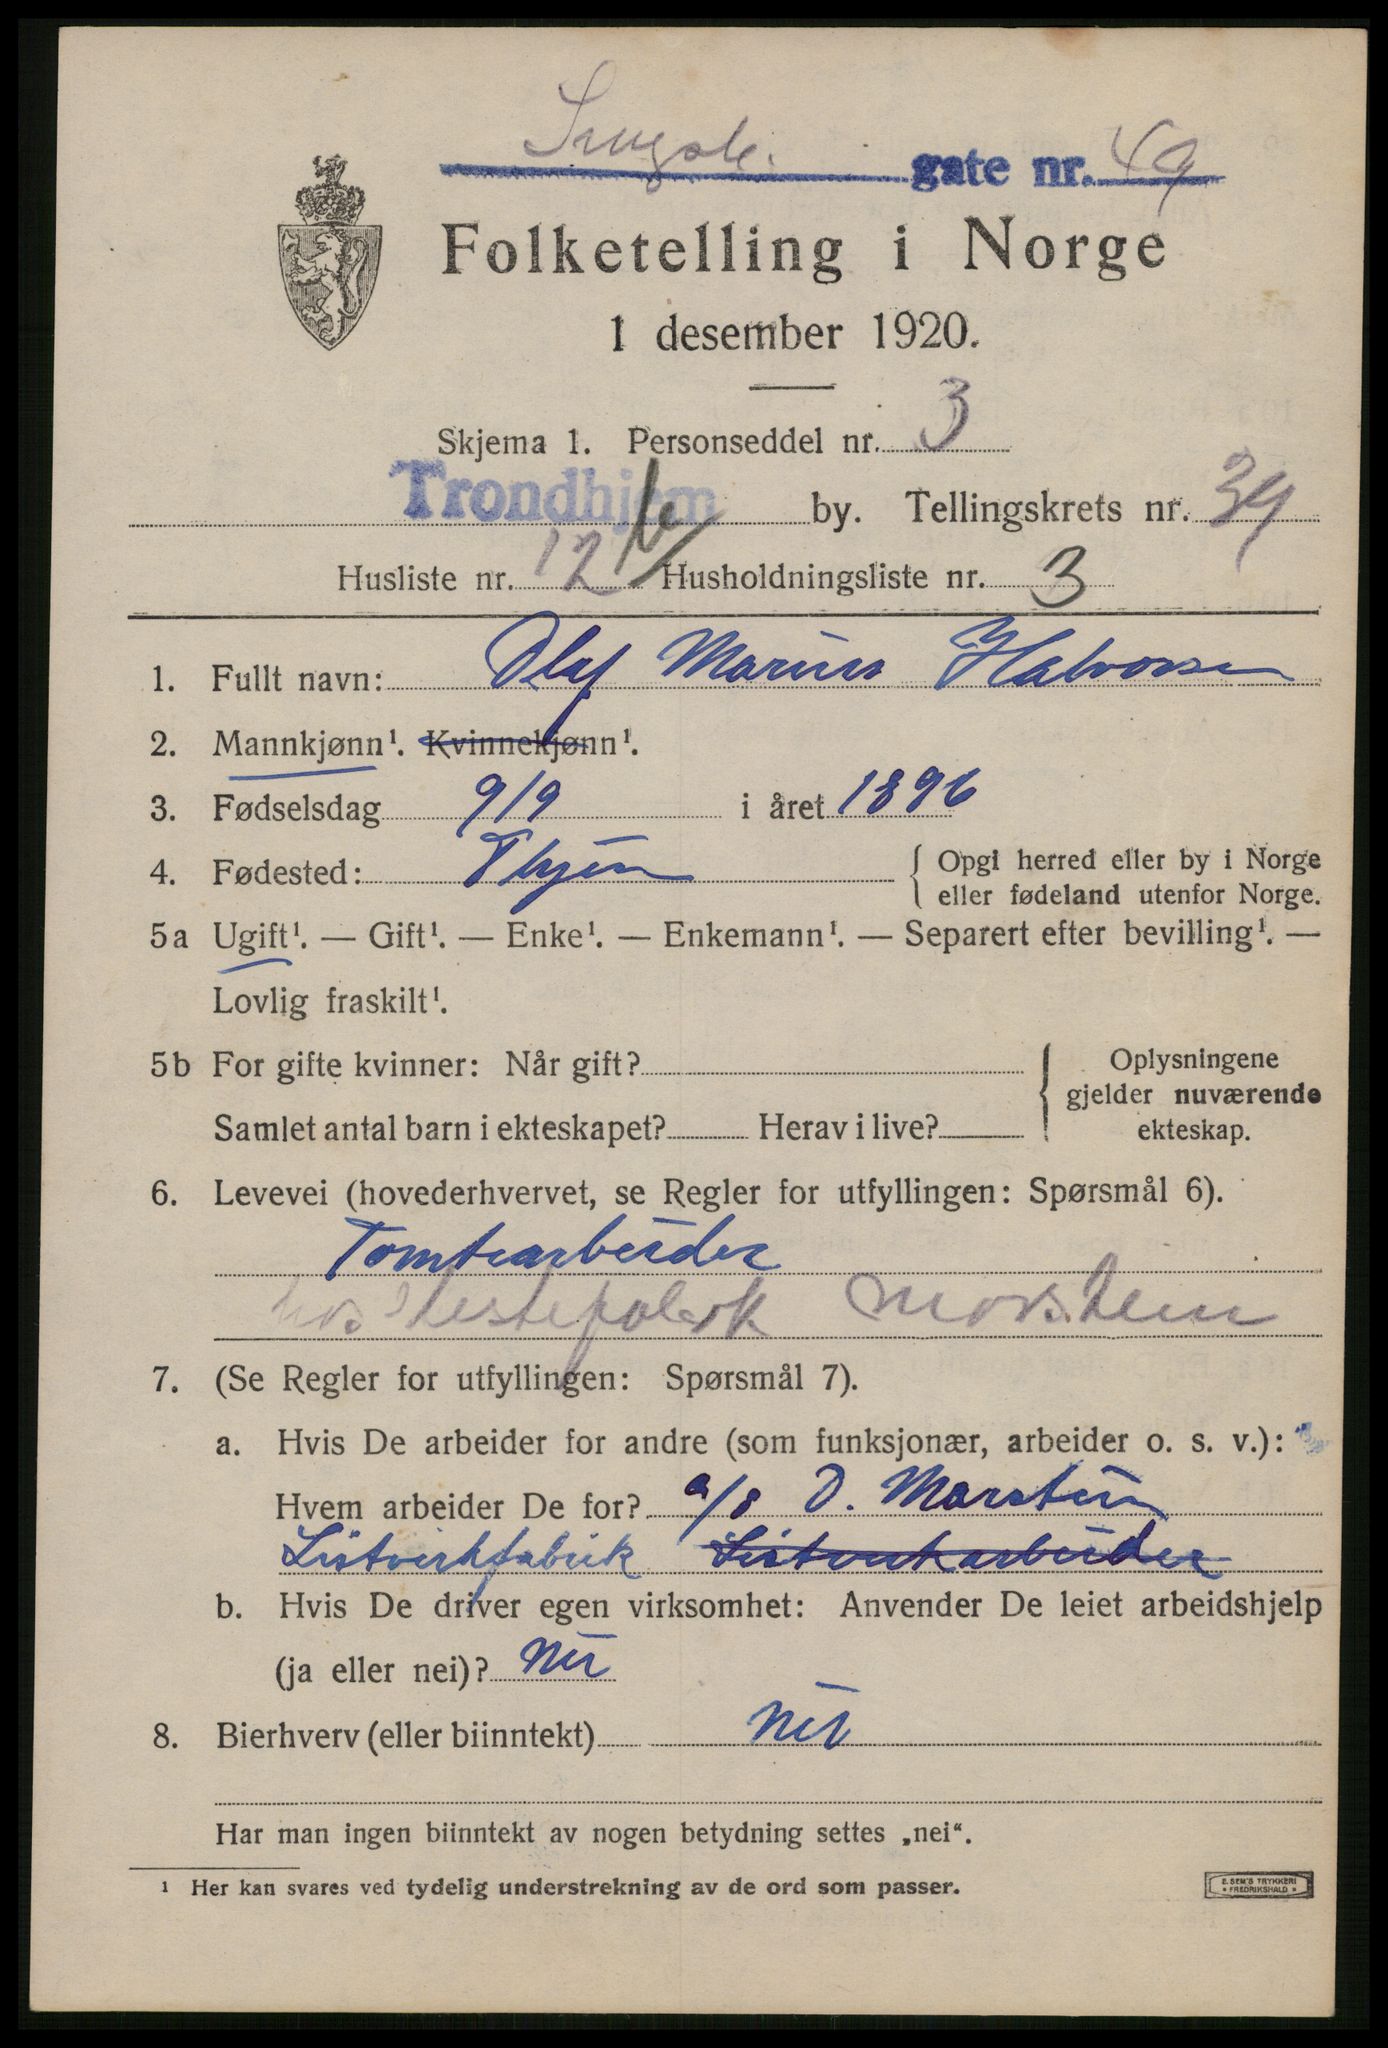 gate nr. 49
Folketelling i Norge
1 desember 1920.
Skjema 1. Personseddel nr. 3
Trondhjem by. Tellingskrets nr. 34
Husliste nr. 12 b Husholdningsliste nr. 3
1. Fullt navn: Olaf Marius Halvorsen
2. Mannkjønn¹. Kvinnekjønn¹.
3. Fødselsdag 9/9 i året 1896
4. Fødested: Thjem { Opgi herred eller by i Norge
eller fødeland utenfor Norge.
5a Ugift¹. — Gift¹. — Enke¹. — Enkemann¹. — Separert efter bevilling¹. —
Lovlig fraskilt¹.
5b For gifte kvinner: Når gift? { Oplysningene
gjelder nuværende
Samlet antal barn i ekteskapet? Herav i live? ekteskap.
6. Levevei (hovederhvervet, se Regler for utfyllingen: Spørsmål 6).
Tomtearbeider
hos
7. (Se Regler for utfyllingen: Spørsmål 7).
a. Hvis De arbeider for andre (som funksjonær, arbeider o. s. v.):
Hvem arbeider De for? a/s O. Marstein
Listverkfabrik Listverkarbeider
b. Hvis De driver egen virksomhet: Anvender De leiet arbeidshjelp
(ja eller nei)? Nei
8. Bierhverv (eller biinntekt) Nei
Har man ingen biinntekt av nogen betydning settes „nei“.
¹ Her kan svares ved tydelig understrekning av de ord som passer.
E. SEM'S TRYKKERI
FREDRIKSHALD